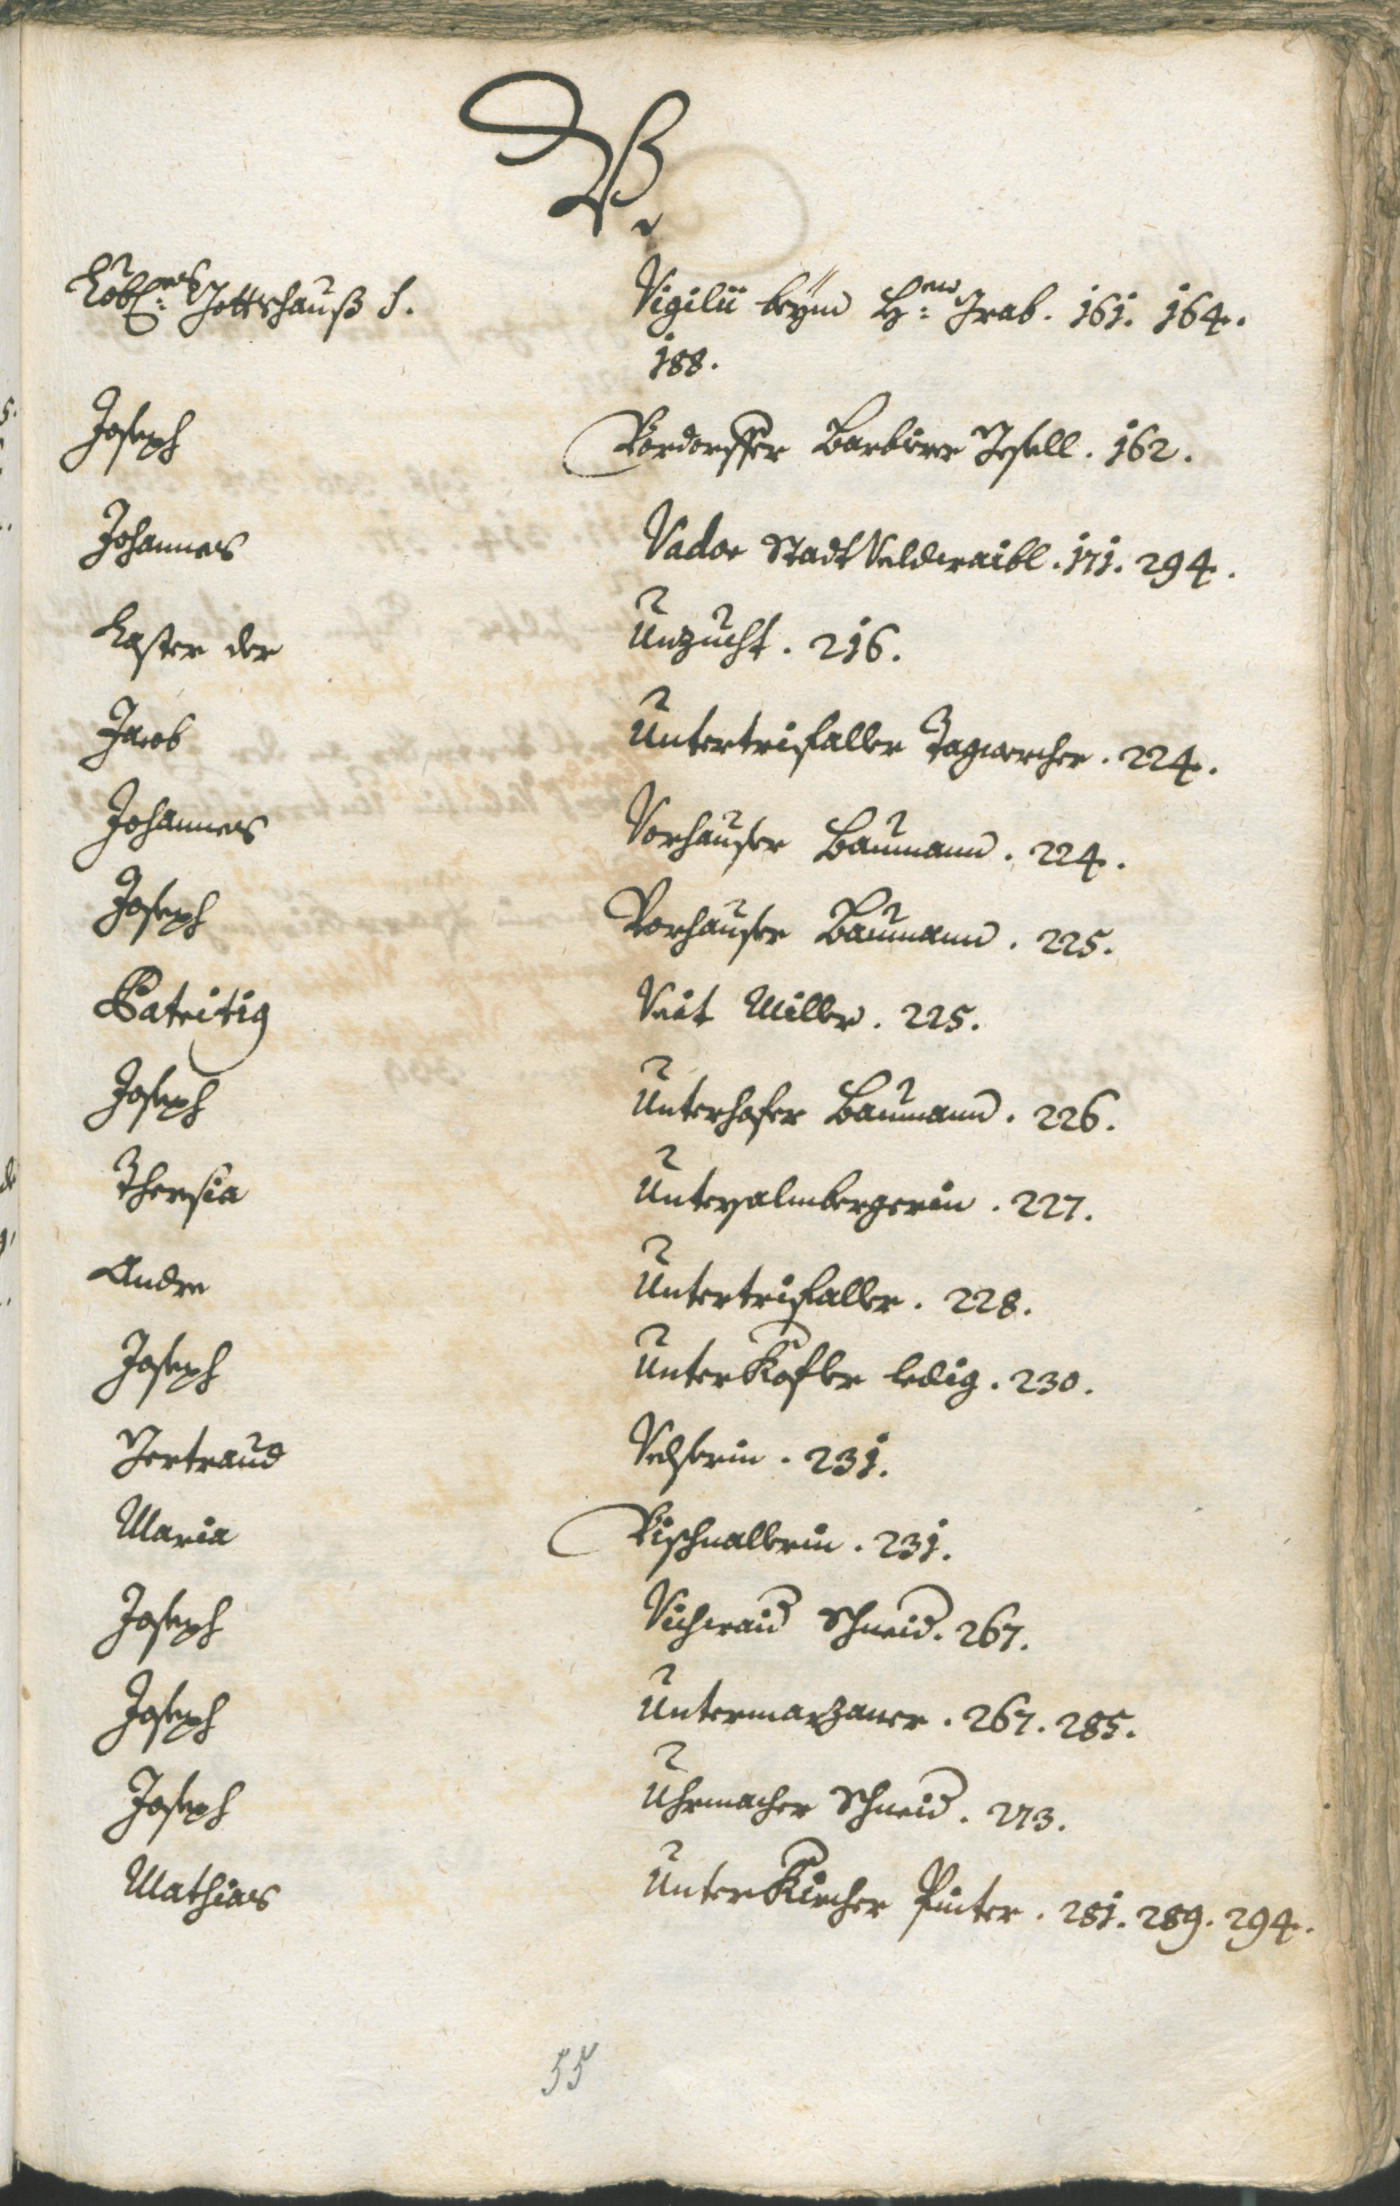 V.
Löbl:es Gottshauß S. Vigilii beym H:en Grab. 161. 164.
188.
Joseph Vordorffer Barbirer Gesell. 162.
Johannes Vador Stadt Veldwaibl. 171. 294.
Laster der Unzucht. 216.
Jacob Untertrifaller Tagwercher. 224.
Johannes Vorhauser Baumann. 224.
Joseph Vorhauser Baumann. 225.
Veit Miller. 225.
Joseph Unterhofer Baumann. 226.
Theresia 227.
Andre Untertrifaller. 228.
Joseph Unterkofler ledig. 230.
Gertraud 231.
Maria Vischnallerin. 231.
Joseph Viehwaid Schneid. 267.
Joseph Untermarzaner. 267. 285.
Joseph Uhrmacher Schneid. 273.
Mathias Unterkircher Pinter. 281. 289. 294.
55